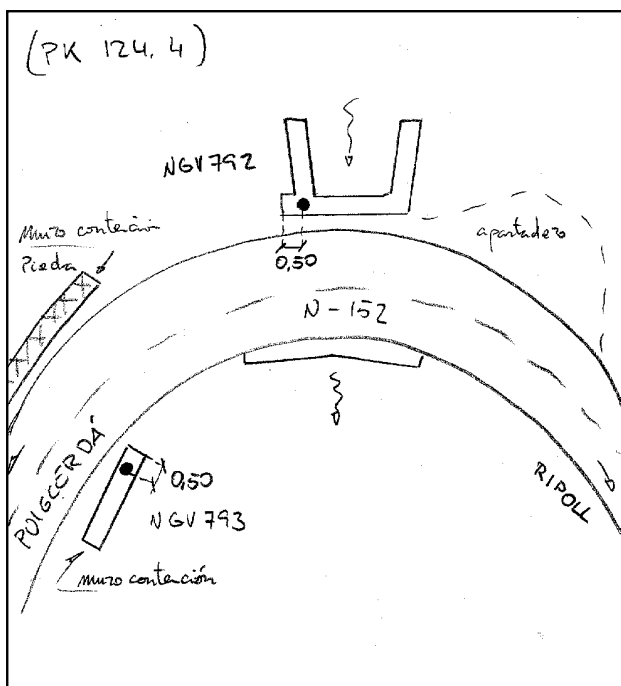 (PK 124.4)
NGV792
Muro contención
Piedra
apartadero
0,50
N-152
PUIGCERDÁ
0,50
RIPOLL
NGV793
muro contención